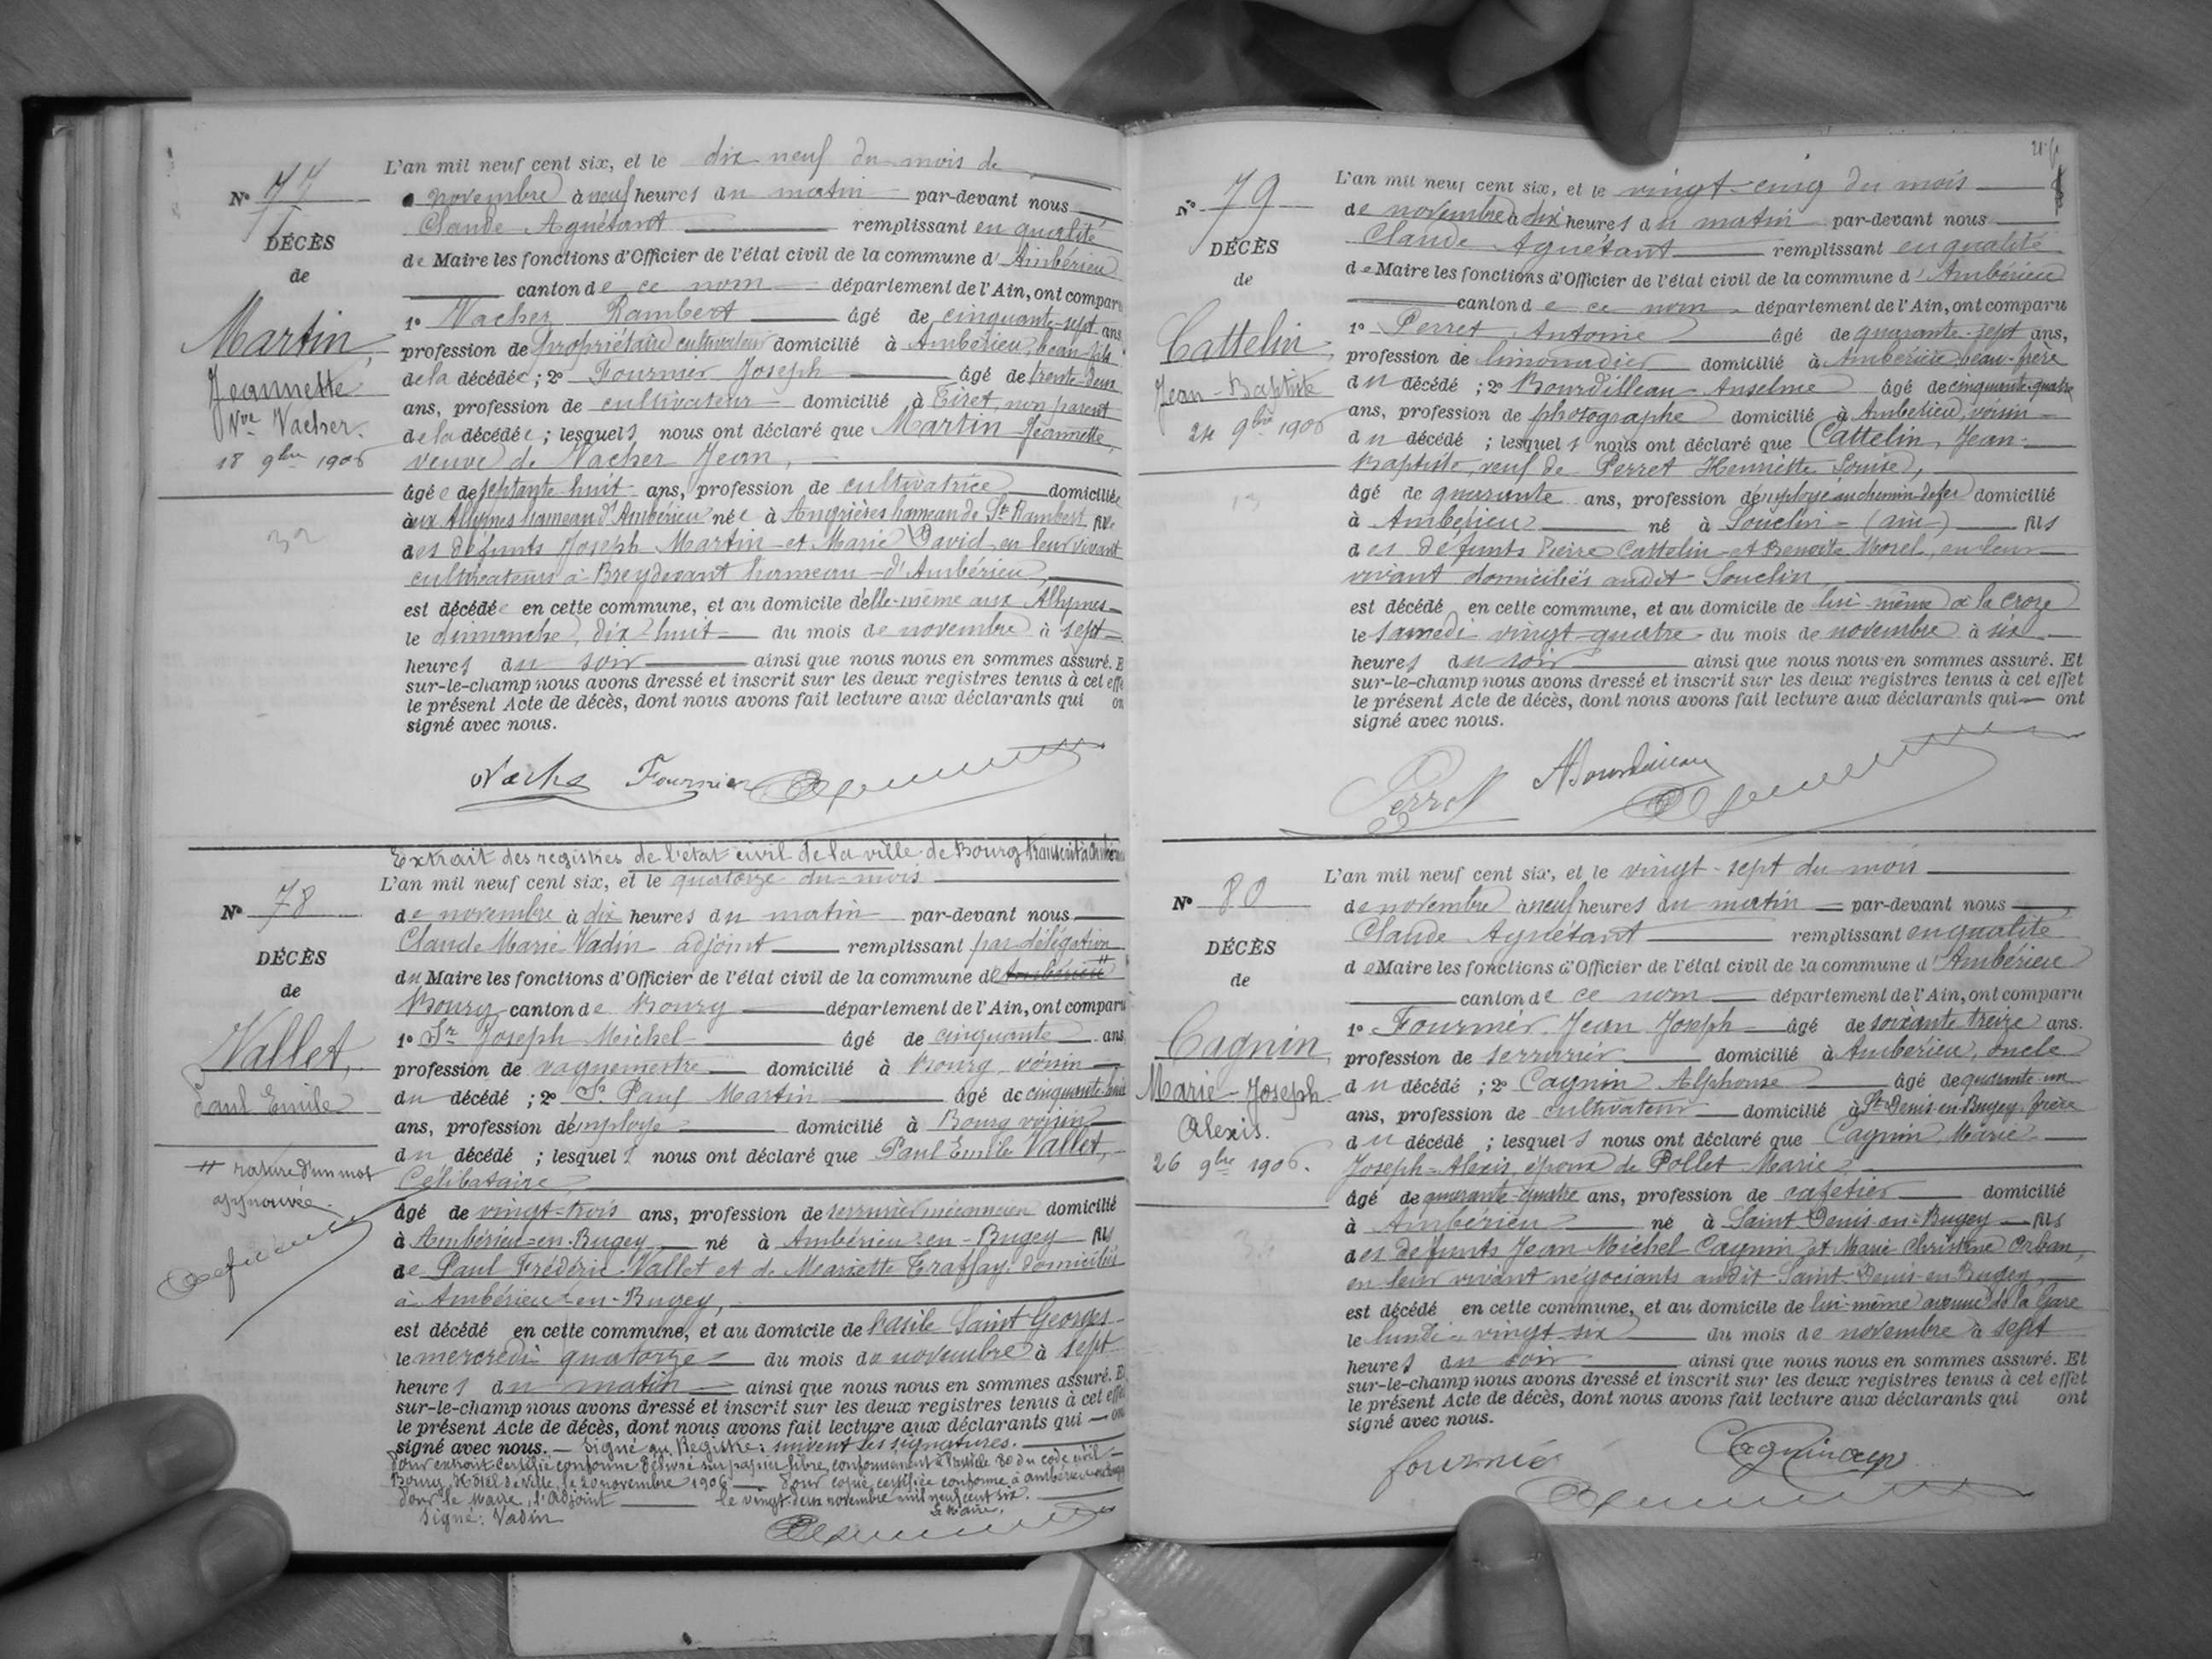 N° 77
DÉCÈS
de
Martin,
Jeannette
Vve Vacher.
18 9bre 1906
32
L'an mil neuf cent six, et le dix neuf du mois de
novembre à neuf heures du matin par-devant nous
Claude Aguétant remplissant en qualité
de Maire les fonctions d'Officier de l'état civil de la commune d'Ambérieu
canton de ce nom département de l'Ain, ont comparu
1° Vacher Rambert âgé de cinquante-sept ans
profession de propriétaire cultivateur domicilié à Ambérieu, beau-fils
de la décédée ; 2° Fournier Joseph âgé de trente-deux
ans, profession de cultivateur domicilié à Tiret, non parent
de la décédée ; lesquels nous ont déclaré que Martin Jeannette,
veuve de Vacher Jean,
âgée de septante huit ans, profession de cultivatrice domiciliée
aux Allymes hameau d'Ambérieu née à Angrières hameau de St Rambert fille
des défunts Joseph Martin et Marie David en leur vivant
cultivateurs à Breydevant hameau d'Ambérieu,
est décédée en cette commune, et au domicile d'elle-même aux Allymes
le dimanche, dix huit du mois de novembre à sept
heures du soir ainsi que nous nous en sommes assuré. E
sur-le-champ nous avons dressé et inscrit sur les deux registres tenus à cet effe
le présent Acte de décès, dont nous avons fait lecture aux déclarants qui on
signé avec nous.
Fournier
N° 78
DÉCÈS
de
Vallet,
Paul Emile
rature d'un mot
approuvée.
Extrait des registres de l'état civil de la ville de Bourg transcrit à
L'an mil neuf cent six, et le quatorze du mois
de novembre à dix heures du matin par-devant nous
Claude Marie Vadin adjoint remplissant par délégation
du Maire les fonctions d'Officier de l'état civil de la commune de Ambérieu
Bourg canton de Bourg département de l'Ain, ont comparu
1° Sr Joseph Michel âgé de cinquante ans,
profession de vaguemestre domicilié à Bourg, voisin
du décédé ; 2° Sr Paul Martin âgé de cinquante-huit
ans, profession d'employé domicilié à Bourg voisin
du décédé ; lesquels nous ont déclaré que Paul Emile Vallet,
Célibataire,
âgé de vingt-trois ans, profession de serrurier mécanicien domicilié
à Ambérieu-en-Bugey né à Ambérieu-en-Bugey fils
de Paul Frédéric Vallet et de Mariette Traffay, domiciliés
à Ambérieu-en-Bugey,
est décédé en cette commune, et au domicile de l'asile Saint Georges
le mercredi quatorze du mois de novembre à sept
heures du matin ainsi que nous nous en sommes assuré. E
sur-le-champ nous avons dressé et inscrit sur les deux registres tenus à cet effet
le présent Acte de décès, dont nous avons fait lecture aux déclarants qui on
signé avec nous. — Signé au Registre : suivent les signatures.
Pour extrait certifié conforme délivré sur papier libre, conformément à l'article 80 du code civil
Bourg, Hôtel de Ville, le 20 novembre 1906 — Pour copie certifiée conforme à Ambérieu-en-Bugey
Pour le Maire, l'adjoint le vingt-deux novembre mil neuf cent six.
Signé : Vadin Le Maire,
N° 79
DÉCÈS
de
Cattelin,
Jean-Baptiste
24 9bre 1906
13
L'an mil neuf cent six, et le vingt-cinq du mois
de novembre à dix heures du matin par-devant nous
Claude Aguétant remplissant en qualité
de Maire les fonctions d'Officier de l'état civil de la commune d'Ambérieu
canton de ce nom département de l'Ain, ont comparu
1° Perret Antoine âgé de quarante-sept ans,
profession de limonadier domicilié à Ambérieu, beau-frère
du décédé ; 2° Bourdilleau Anselme âgé de cinquante-quatre
ans, profession de photographe domicilié à Ambérieu, voisin
du décédé ; lesquels nous ont déclaré que Cattelin, Jean-
Baptiste, veuf de Perret Henriette Louise,
âgé de quarante ans, profession d'employé au chemin de fer domicilié
à Ambérieu né à Souclin (ain) fils
des défunts Pierre Cattelin et Benoîte Morel, en leur
vivant domiciliés audit Souclin,
est décédé en cette commune, et au domicile de lui-même à la croze
le samedi vingt-quatre du mois de novembre à six
heures du soir ainsi que nous nous en sommes assuré. Et
sur-le-champ nous avons dressé et inscrit sur les deux registres tenus à cet effet
le présent Acte de décès, dont nous avons fait lecture aux déclarants qui ont
signé avec nous.
Perret
N° 80
DÉCÈS
de
Cagnin,
Marie-Joseph
Alexis.
26 9bre 1906.
L'an mil neuf cent six, et le vingt-sept du mois
de novembre à neuf heures du matin par-devant nous
Claude Aguétant remplissant en qualité
de Maire les fonctions d'Officier de l'état civil de la commune d'Ambérieu
canton de ce nom département de l'Ain, ont comparu
1° Fournier Jean Joseph âgé de soixante treize ans.
profession de serrurier domicilié à Ambérieu, oncle
du décédé ; 2° Cagnin Alphonse âgé de quarante-un
ans, profession de cultivateur domicilié à St Denis-en-Bugey, frère
du décédé ; lesquels nous ont déclaré que Cagnin Marie
Joseph-Alexis, époux de Pollet Marie,
âgé de quarante-quatre ans, profession de cafetier domicilié
à Ambérieu né à Saint Denis-en-Bugey fils
des défunts Jean Michel Cagnin et Marie Christine Orban,
en leur vivant négociants audit Saint-Denis-en-Bugey,
est décédé en cette commune, et au domicile de lui-même avenue de la Gare
le lundi vingt-six du mois de novembre à sept
heures du soir ainsi que nous nous en sommes assuré. Et
sur-le-champ nous avons dressé et inscrit sur les deux registres tenus à cet effet
le présent Acte de décès, dont nous avons fait lecture aux déclarants qui ont
signé avec nous.